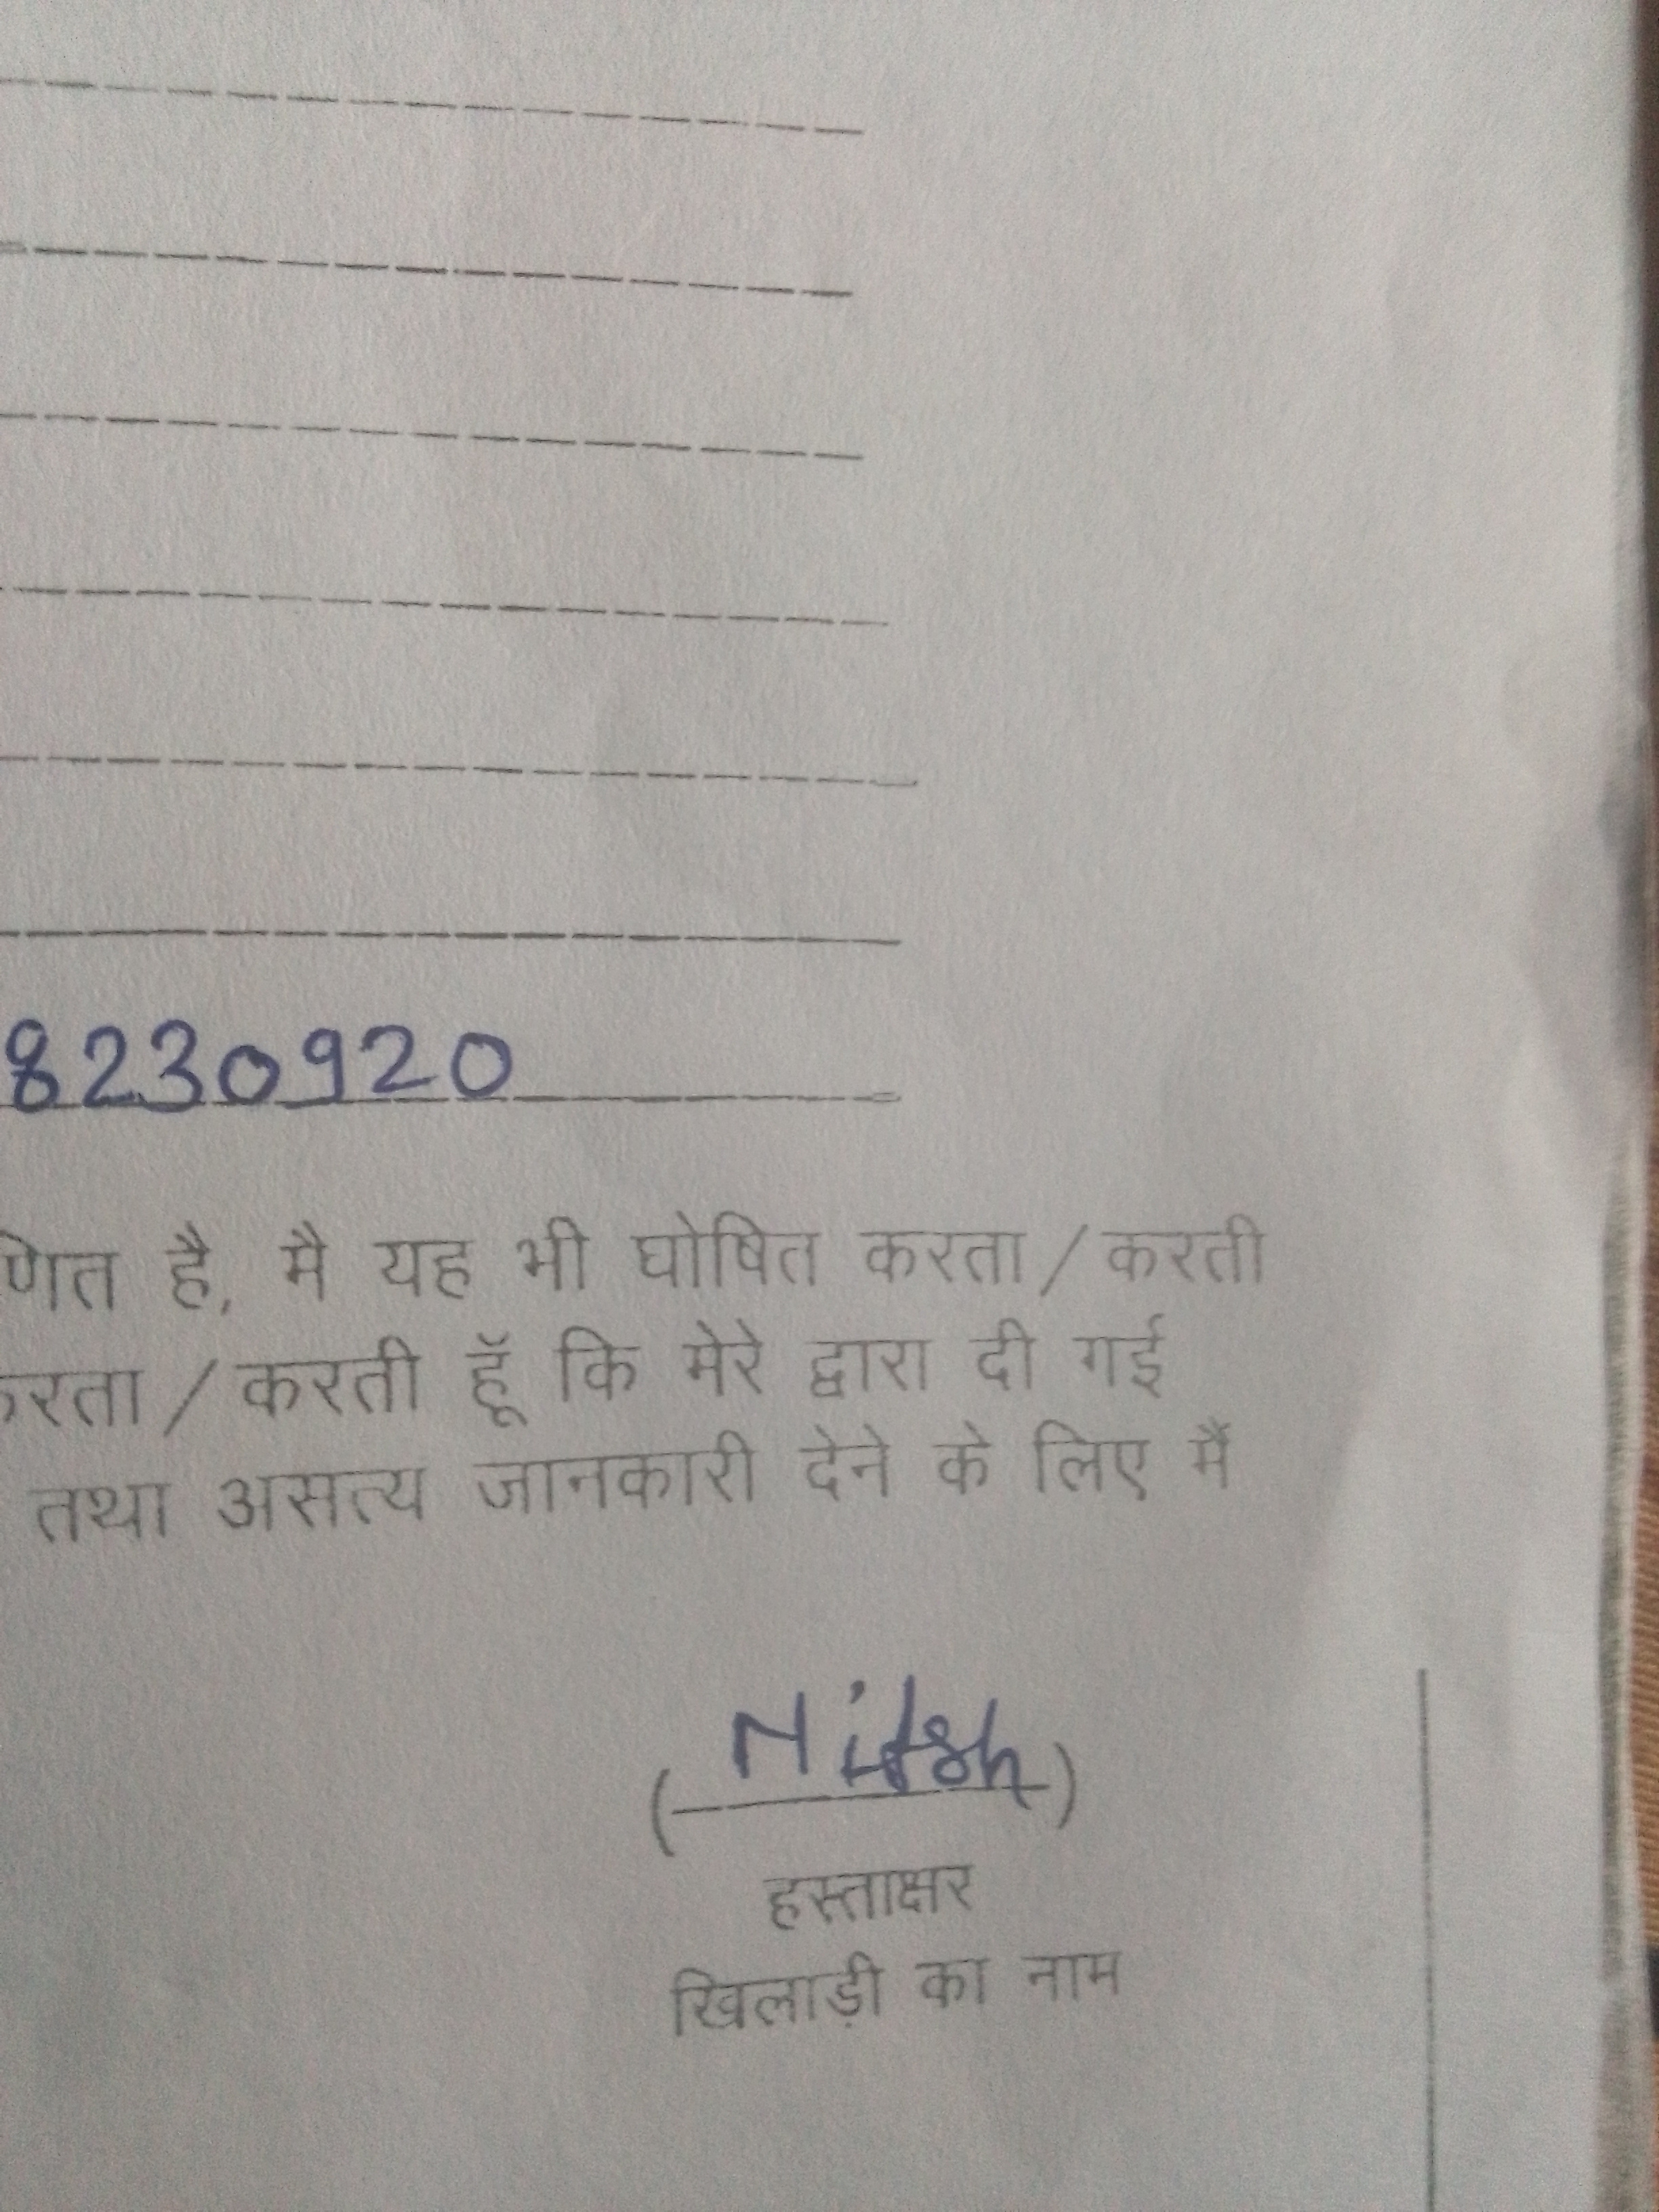 8230920
णित है, मै यह भी घोषित करता/करती
करता/करती हूॅ कि मेरे द्वारा दी गई
तथा असत्य जानकारी देने के लिए मैं
(Nitsh)
हस्ताक्षर
खिलाड़ी का नाम